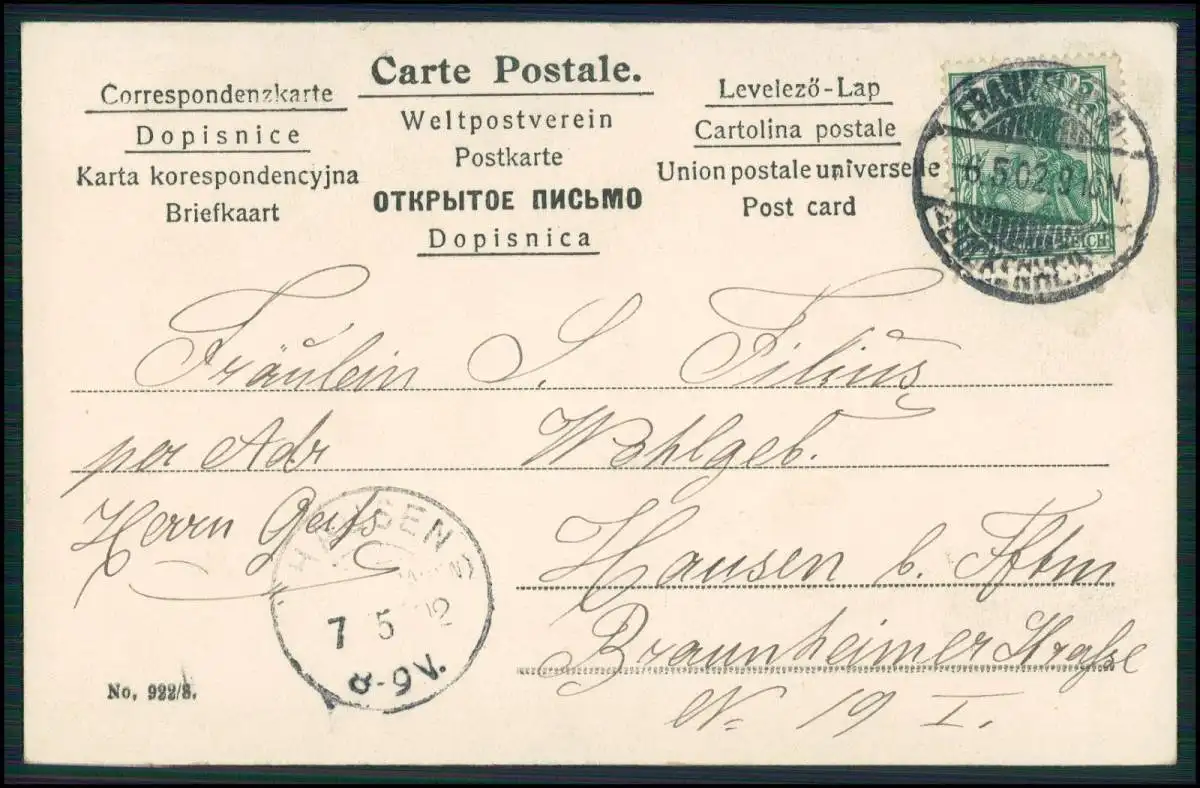 Carte Postale.
Correspondenzkarte
Dopisnice
Karta korespondencyjna
Briefkaart
Weltpostverein
Postkarte
ОТКРЫТОЕ ПИСЬМО
Dopisnica
Levelező-Lap
Cartolina postale
Union postale universelle
Post card
5
REICH
FRANKFURT
6.5.02.9-10N.
BOCKENHEIM
Fräulein S. Filius
per Adr Wohlgeb.
Herrn
Hausen b. Fftm
Braunheimer Straße
No 19 I.
HAUSEN
7 5 02
8-9V.
No. 922/8.